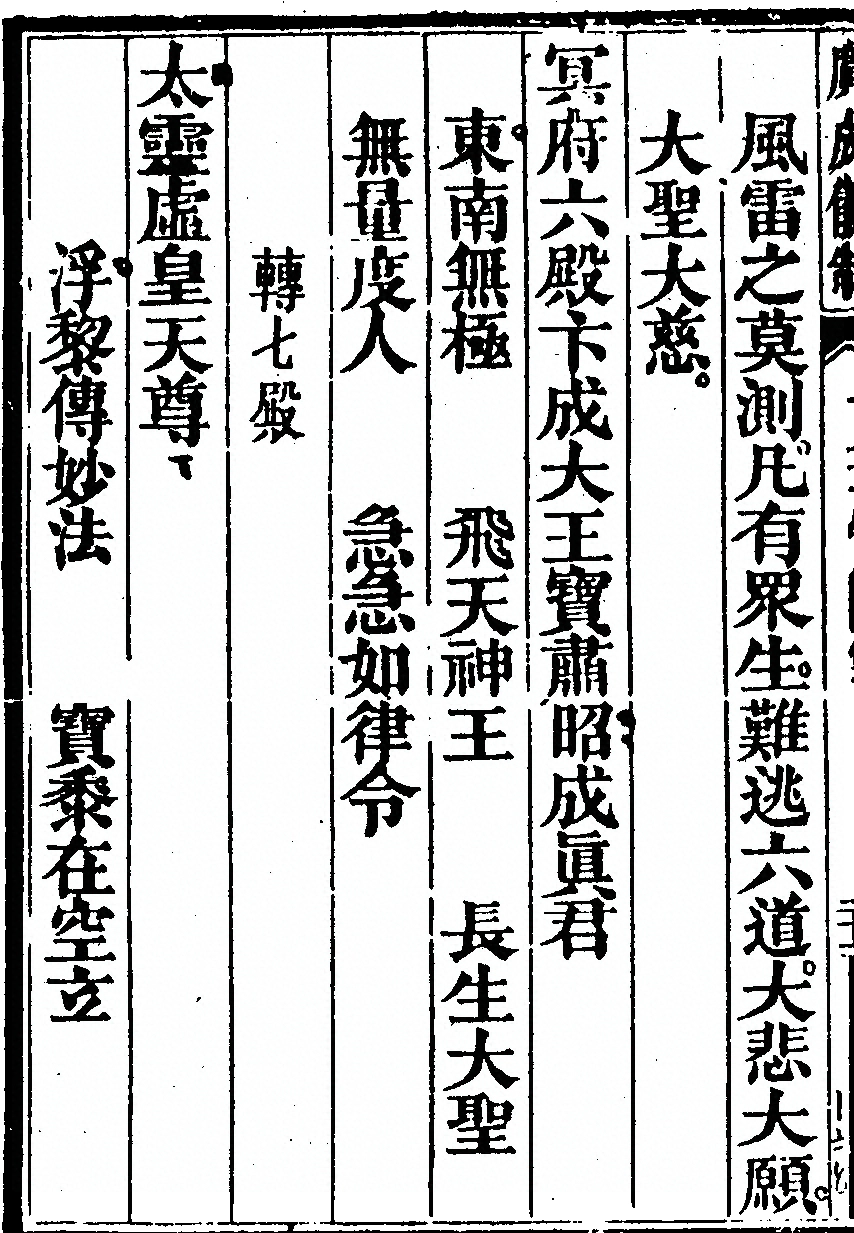 廣成儀制
風雷之莫測。凡有眾生。難逃六道。大悲大願。
大聖大慈。
冥府六殿卞成大王寶肅昭成眞君
東南無極　飛天神王　長生大聖
無量度人　急急如律令
轉七殿
太靈虛皇天尊
浮黎傳妙法　寶黍在空立